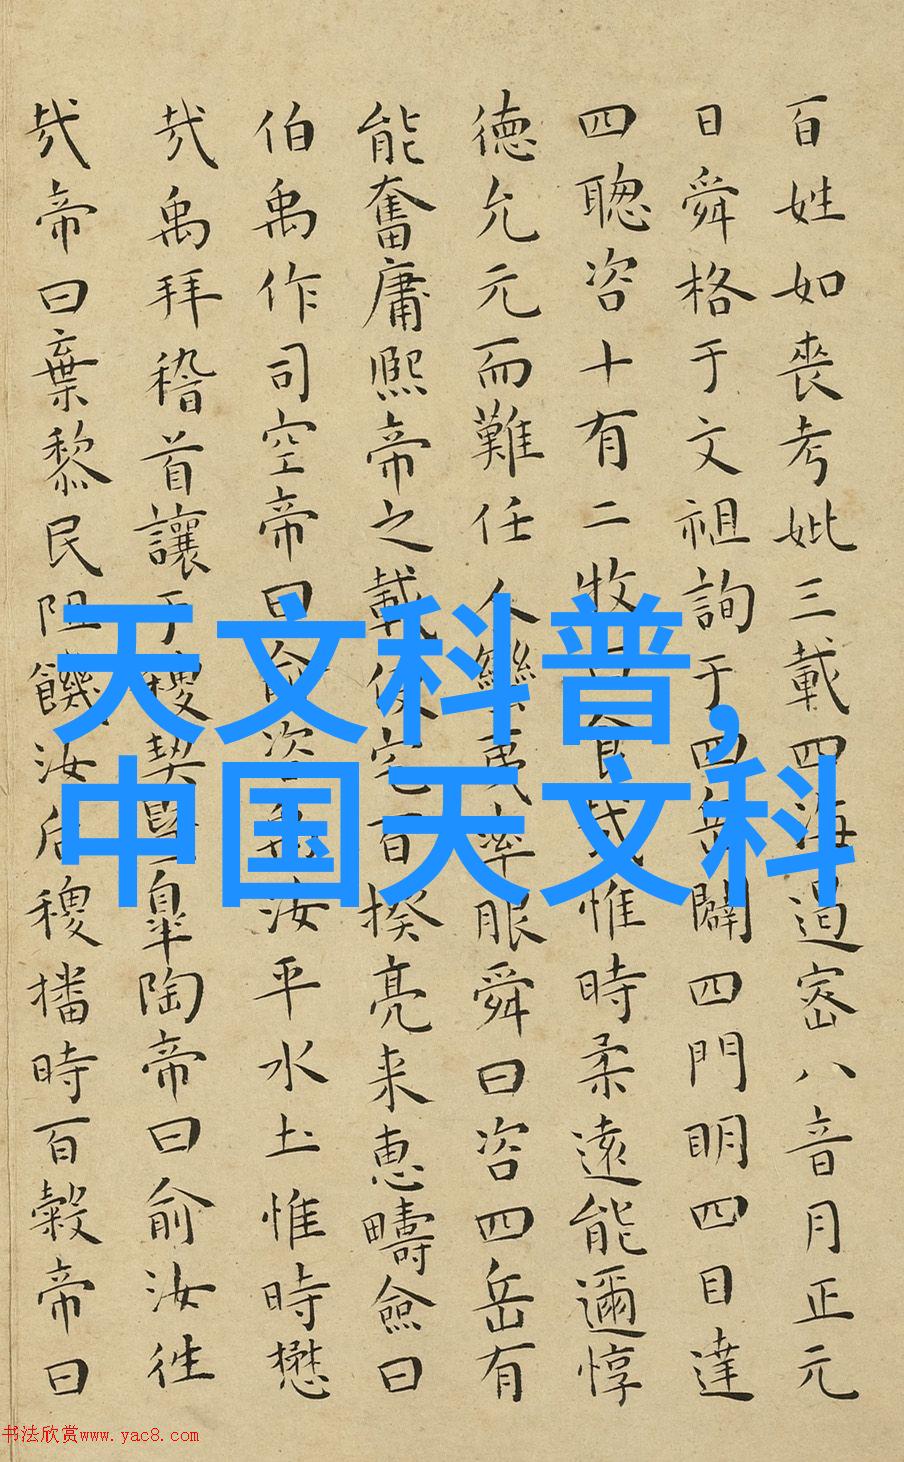 百姓如喪考妣三載四海遏密八音月正元
日舜格于文祖詢于四岳闢四門明四目達
四聰咨十有二牧曰食哉惟時柔遠能邇惇
德允元而難任人蠻夷率服舜曰咨四岳有
能奮庸熙帝之載使宅百揆亮采惠疇僉曰
伯禹作司空帝曰俞咨禹汝平水土惟時懋
哉禹拜稽首讓于稷契暨皐陶帝曰俞汝往
哉帝曰棄黎民阻饑汝后稷播時百穀帝曰
天文科普,
中国天文科
书法欣赏www.yac8.com